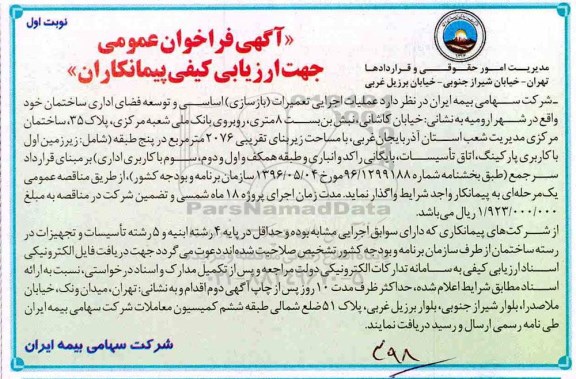 نوبت اول
«آگهی فراخوان عمومی
جهت ارزیابی کیفی پیمانکاران»
مدیریت امور حقوقی و قراردادها
تهران - خیابان شیراز جنوبی - خیابان برزیل غربی
ـ شرکت سهامی بیمه ایران در نظر دارد عملیات اجرایی تعمیرات (بازسازی) اساسی و توسعه فضای اداری ساختمان خود
واقع در شهر ارومیه به نشانی: خیابان کاشانی، نبش بن‌بست ۸ متری، روبروی بانک ملی شعبه مرکزی، پلاک ۳۵، ساختمان
مرکزی مدیریت شعب استان آذربایجان غربی، با مساحت زیربنای تقریبی ۲۰۷۶ مترمربع در پنج طبقه (شامل: زیرزمین اول
با کاربری پارکینگ، اتاق تأسیسات، بایگانی راکد و انباری و طبقه همکف و اول و دوم، سوم با کاربری اداری) بر مبنای قرارداد
سرجمع (طبق بخشنامه شماره ۹۶/۱۲۹۹۱۸۸ مورخ ۱۳۹۶/۰۵/۰۴ سازمان برنامه و بودجه کشور)، از طریق مناقصه عمومی
یک‌مرحله‌ای به پیمانکار واجد شرایط واگذار نماید. مدت زمان اجرای پروژه ۱۸ ماه شمسی و تضمین شرکت در مناقصه به مبلغ
۱/۹۲۳/۰۰۰/۰۰۰ ریال می‌باشد.
از شرکت‌های پیمانکاری که دارای سوابق اجرایی مشابه بوده و حداقل در پایه ۴ رشته ابنیه و ۵ رشته تأسیسات و تجهیزات در
رشته ساختمان از طرف سازمان برنامه و بودجه کشور تشخیص صلاحیت شده‌اند دعوت می گردد جهت دریافت فایل الکترونیکی
اسناد ارزیابی کیفی به سامانه تدارکات الکترونیکی دولت مراجعه و پس از تکمیل مدارک و اسناد درخواستی، نسبت به ارائه
اسناد مطابق شرایط اعلام شده، حداکثر ظرف مدت ۱۰ روز پس از چاپ آگهی دوم اقدام و به نشانی: تهران، میدان ونک، خیابان
ملاصدرا، بلوار شیراز جنوبی، بلوار برزیل غربی، پلاک ۵۱ ضلع شمالی طبقه ششم کمیسیون معاملات شرکت سهامی بیمه ایران
طی نامه رسمی ارسال و رسید دریافت نمایند.
شرکت سهامی بیمه ایران
ParsNamadData